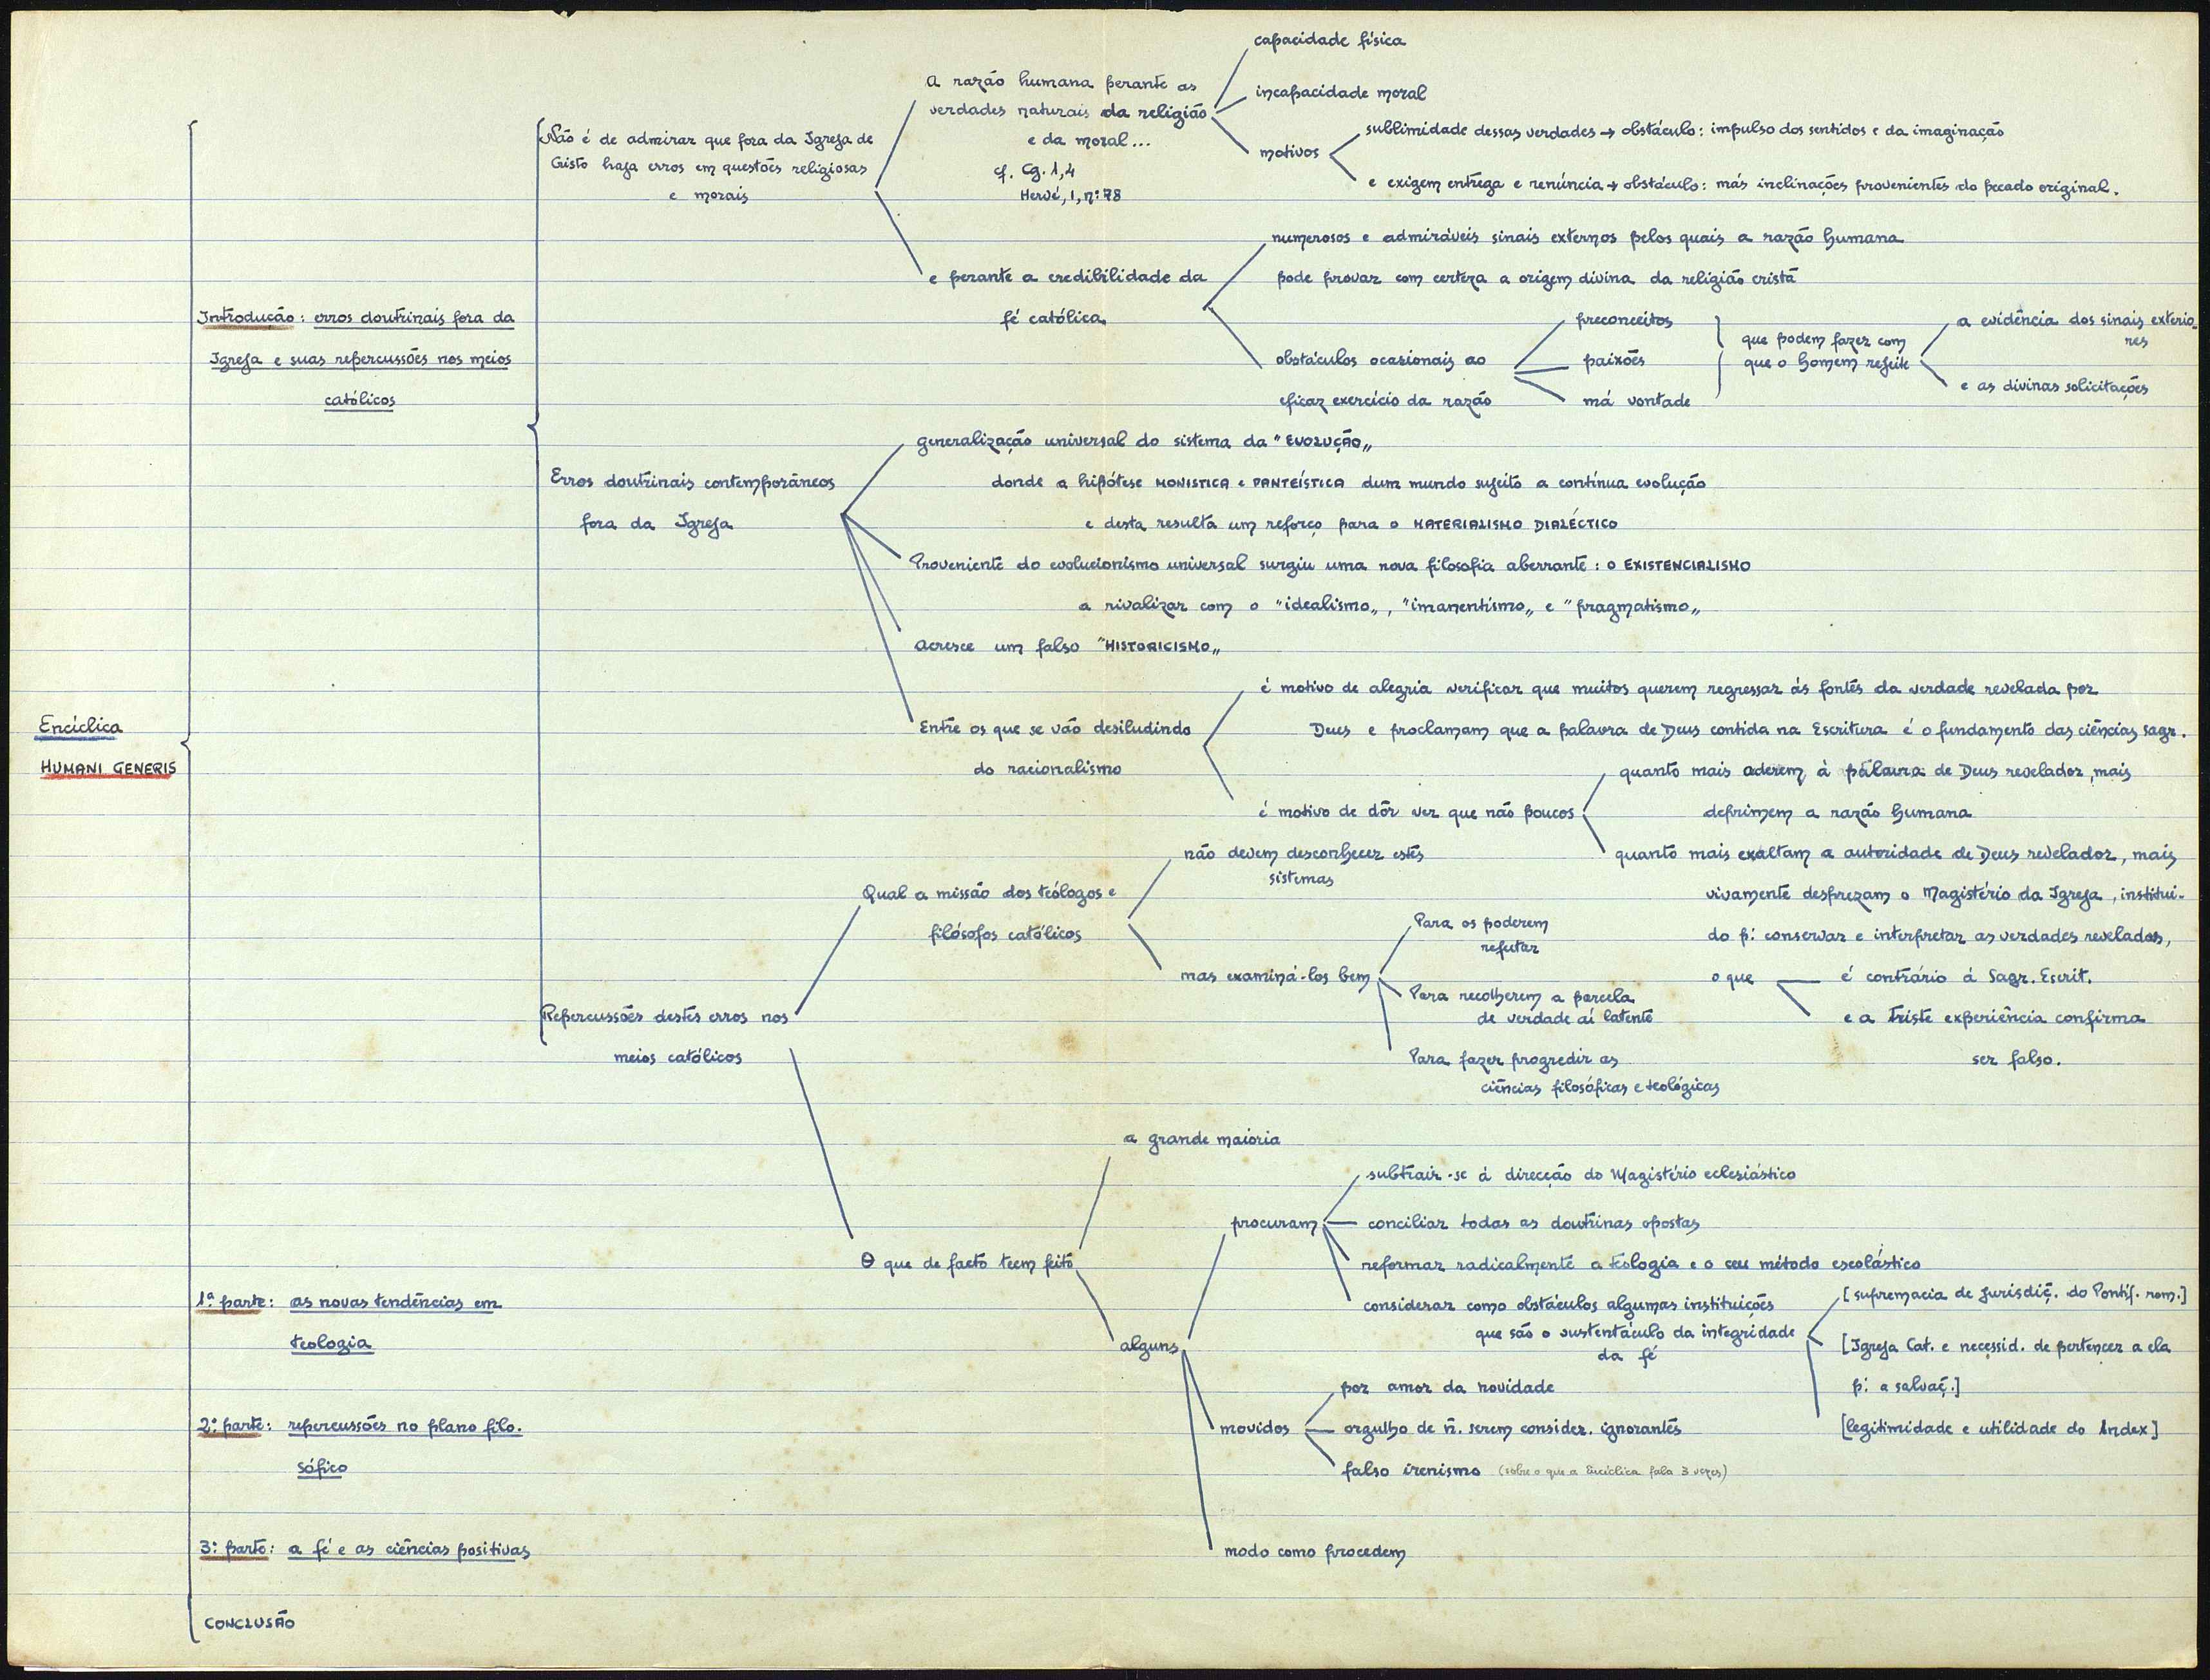 Encíclica
HUMANI GENERIS
Introdução: erros doutrinais fora da
Igreja e suas repercussões nos meios
católicos
Não é de admirar que fora da Igreja de
Cristo haja erros em questões religiosas
e morais
A razão humana perante as
verdades naturais da religião
e da moral...
cf. Cg. 1,4
Hervé, 1, nº 78
capacidade física
incapacidade moral
motivos
sublimidade dessas verdades → obstáculo: impulso dos sentidos e da imaginação
e exigem entrega e renúncia → obstáculo: más inclinações provenientes do pecado original.
e perante a credibilidade da
fé católica.
numerosos e admiráveis sinais externos pelos quais a razão humana
pode provar com certeza a origem divina da religião cristã
obstáculos ocasionais ao
eficaz exercício da razão
preconceitos
paixões
má vontade
que podem fazer com
que o homem rejeite
a evidência dos sinais exterio-
res
e as divinas solicitações
Erros doutrinais contemporâneos
fora da Igreja
generalização universal do sistema da "EVOLUÇÃO„
donde a hipótese MONISTICA e PANTEÍSTICA dum mundo sujeito a contínua evolução
e desta resulta um reforço para o MATERIALISMO DIALÉCTICO
Proveniente do evolucionismo universal surgiu uma nova filosofia aberrante: o EXISTENCIALISMO
a rivalizar com o "idealismo„, "imanentismo„ e "pragmatismo„
Acresce um falso "HISTORICISMO„
Entre os que se vão desiludindo
do racionalismo
é motivo de alegria verificar que muitos querem regressar às fontes da verdade revelada por
Deus e proclamam que a palavra de Deus contida na Escritura é o fundamento das ciências sagr.
é motivo de dôr ver que não poucos
quanto mais aderem à palavra de Deus revelador, mais
deprimem a razão humana
quanto mais exaltam a autoridade de Deus revelador, mais
vivamente desprezam o Magistério da Igreja, institui-
do p: conservar e interpretar as verdades reveladas,
o que
é contrário à Sagr. Escrit.
e a triste experiência confirma
ser falso.
Repercussões destes erros nos
meios católicos
Qual a missão dos teólogos e
filósofos católicos
não devem desconhecer estes
sistemas
mas examiná-los bem
Para os poderem
refutar
Para recolherem a parcela
de verdade aí latente
Para fazer progredir as
ciências filosóficas e teológicas
O que de facto teem feito
a grande maioria
alguns
procuram
subtrair-se à direcção do Magistério eclesiástico
conciliar todas as doutrinas opostas
reformar radicalmente a teologia e o seu método escolástico
considerar como obstáculos algumas instituições
que são o sustentáculo da integridade
da fé
[supremacia de jurisdiç. do Pontíf. rom.]
[Igreja Cat. e necessid. de pertencer a ela
p: a salvaç.]
[legitimidade e utilidade do Index]
movidos
por amor da novidade
orgulho de ñ. serem consider. ignorantes
falso irenismo (sobre o que a Encíclica fala 3 vezes)
modo como procedem
1ª parte: as novas tendências em
teologia
2ª parte: repercussões no plano filo-
sófico
3ª parte: a fé e as ciências positivas
CONCLUSÃO